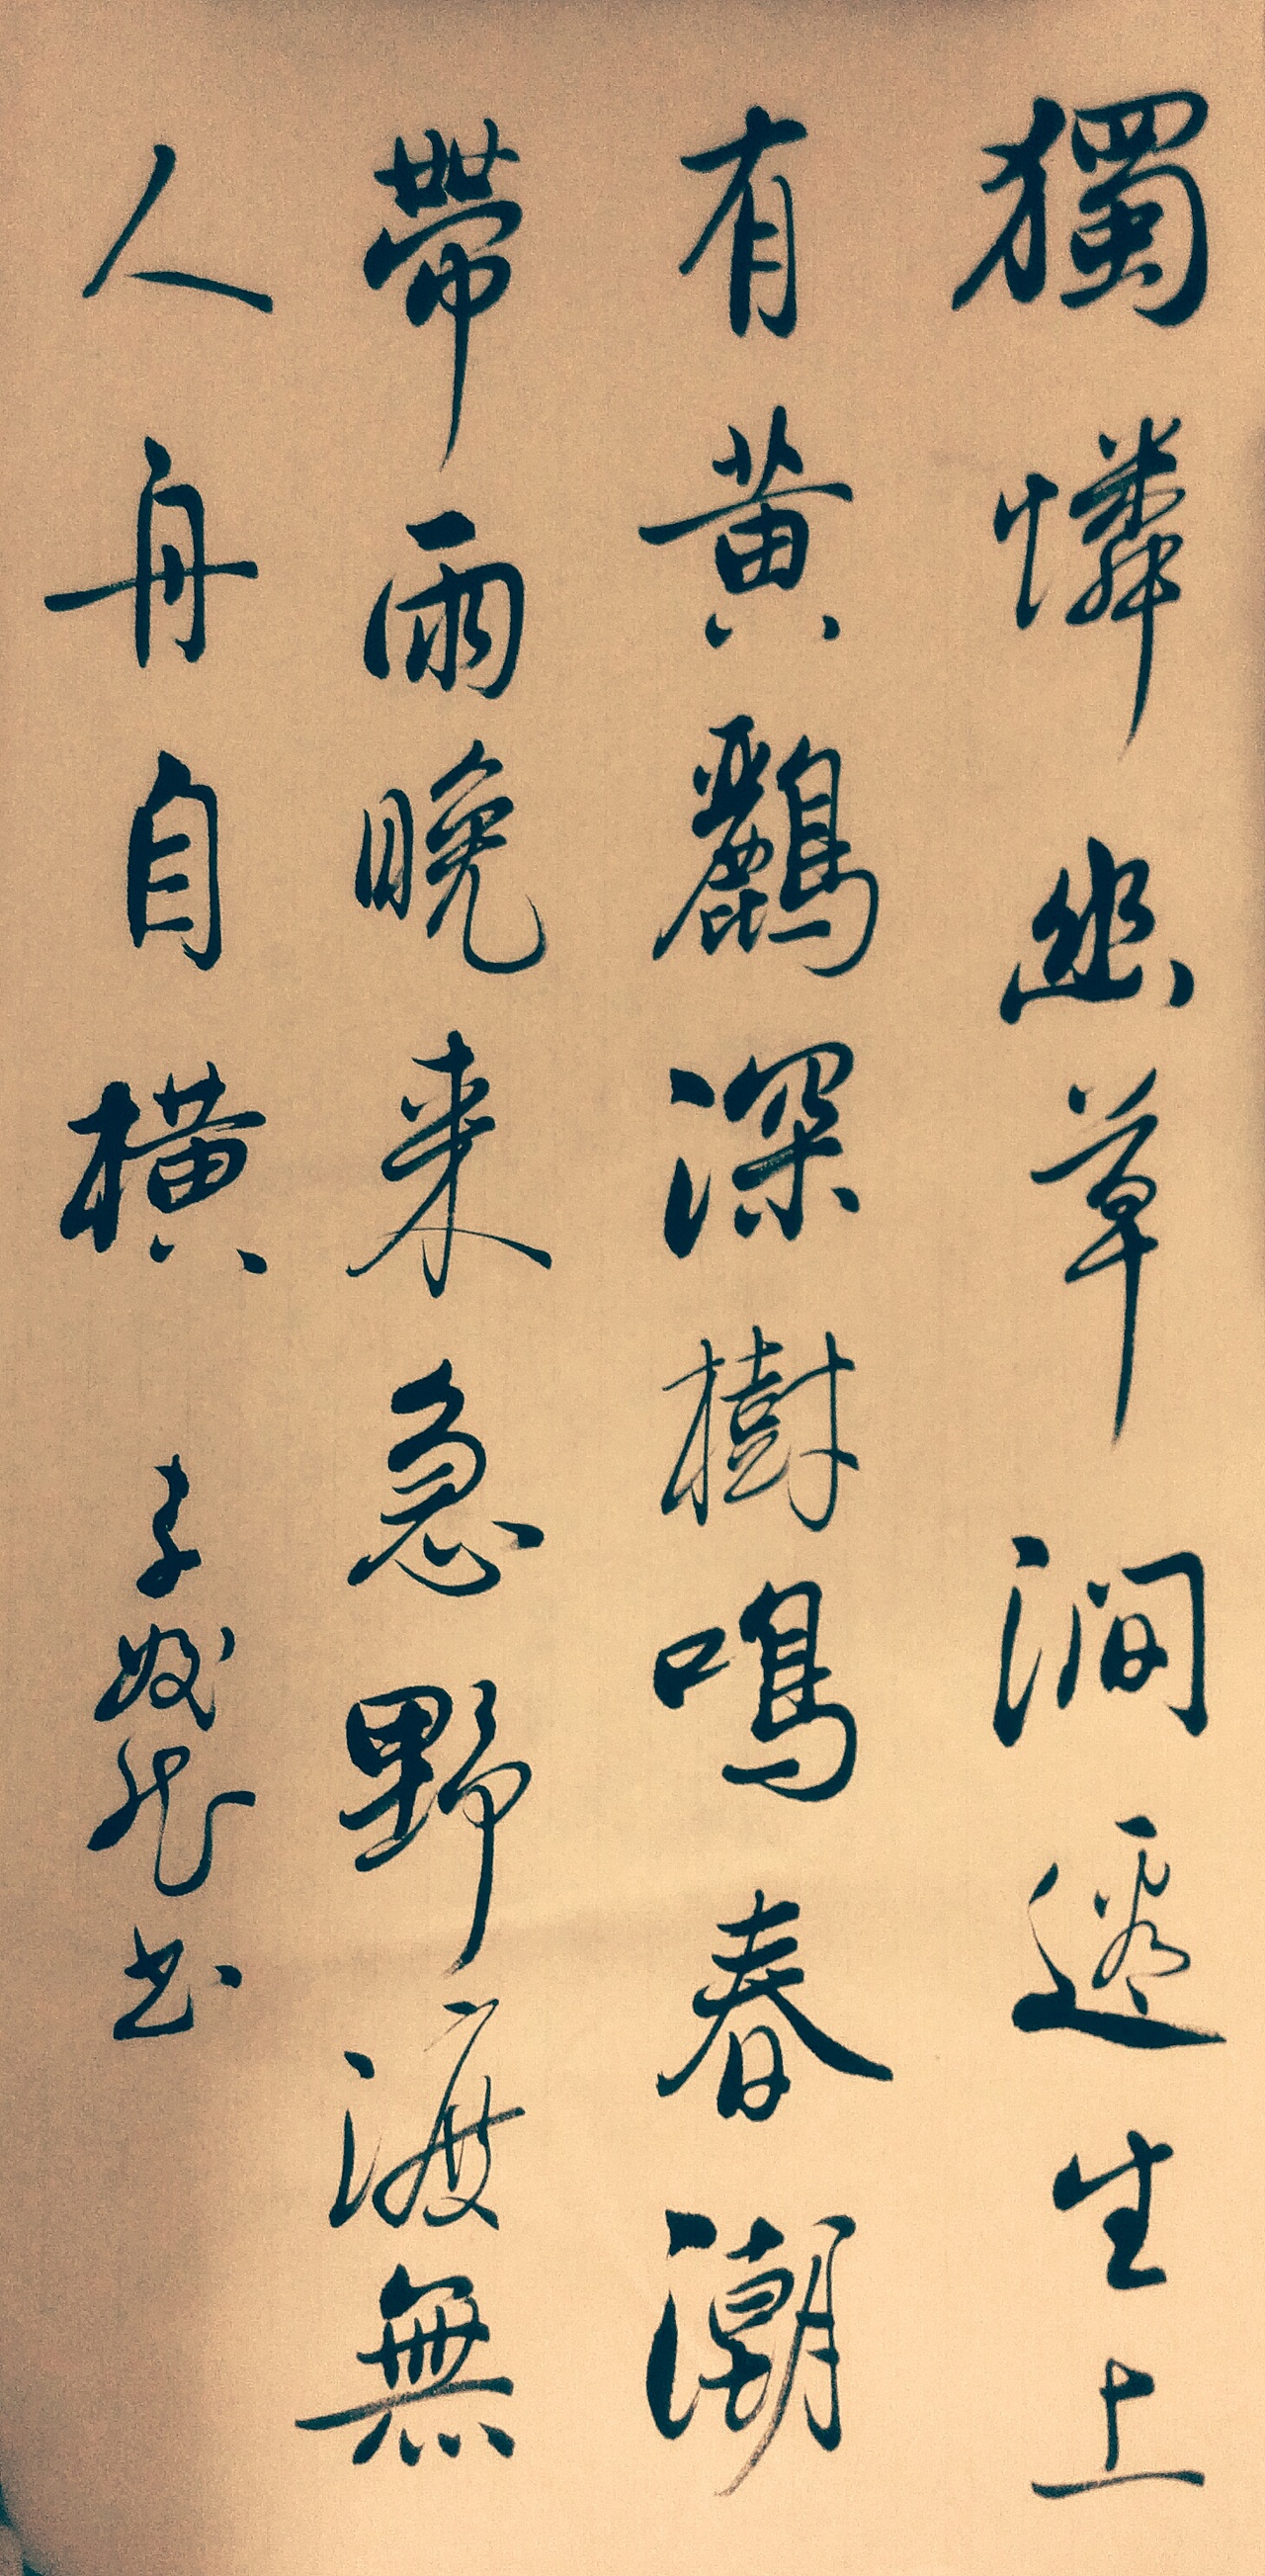 獨憐幽草澗邊生上
有黄鸝深樹鳴春潮
帶雨晚来急野渡無
人舟自横 子 书